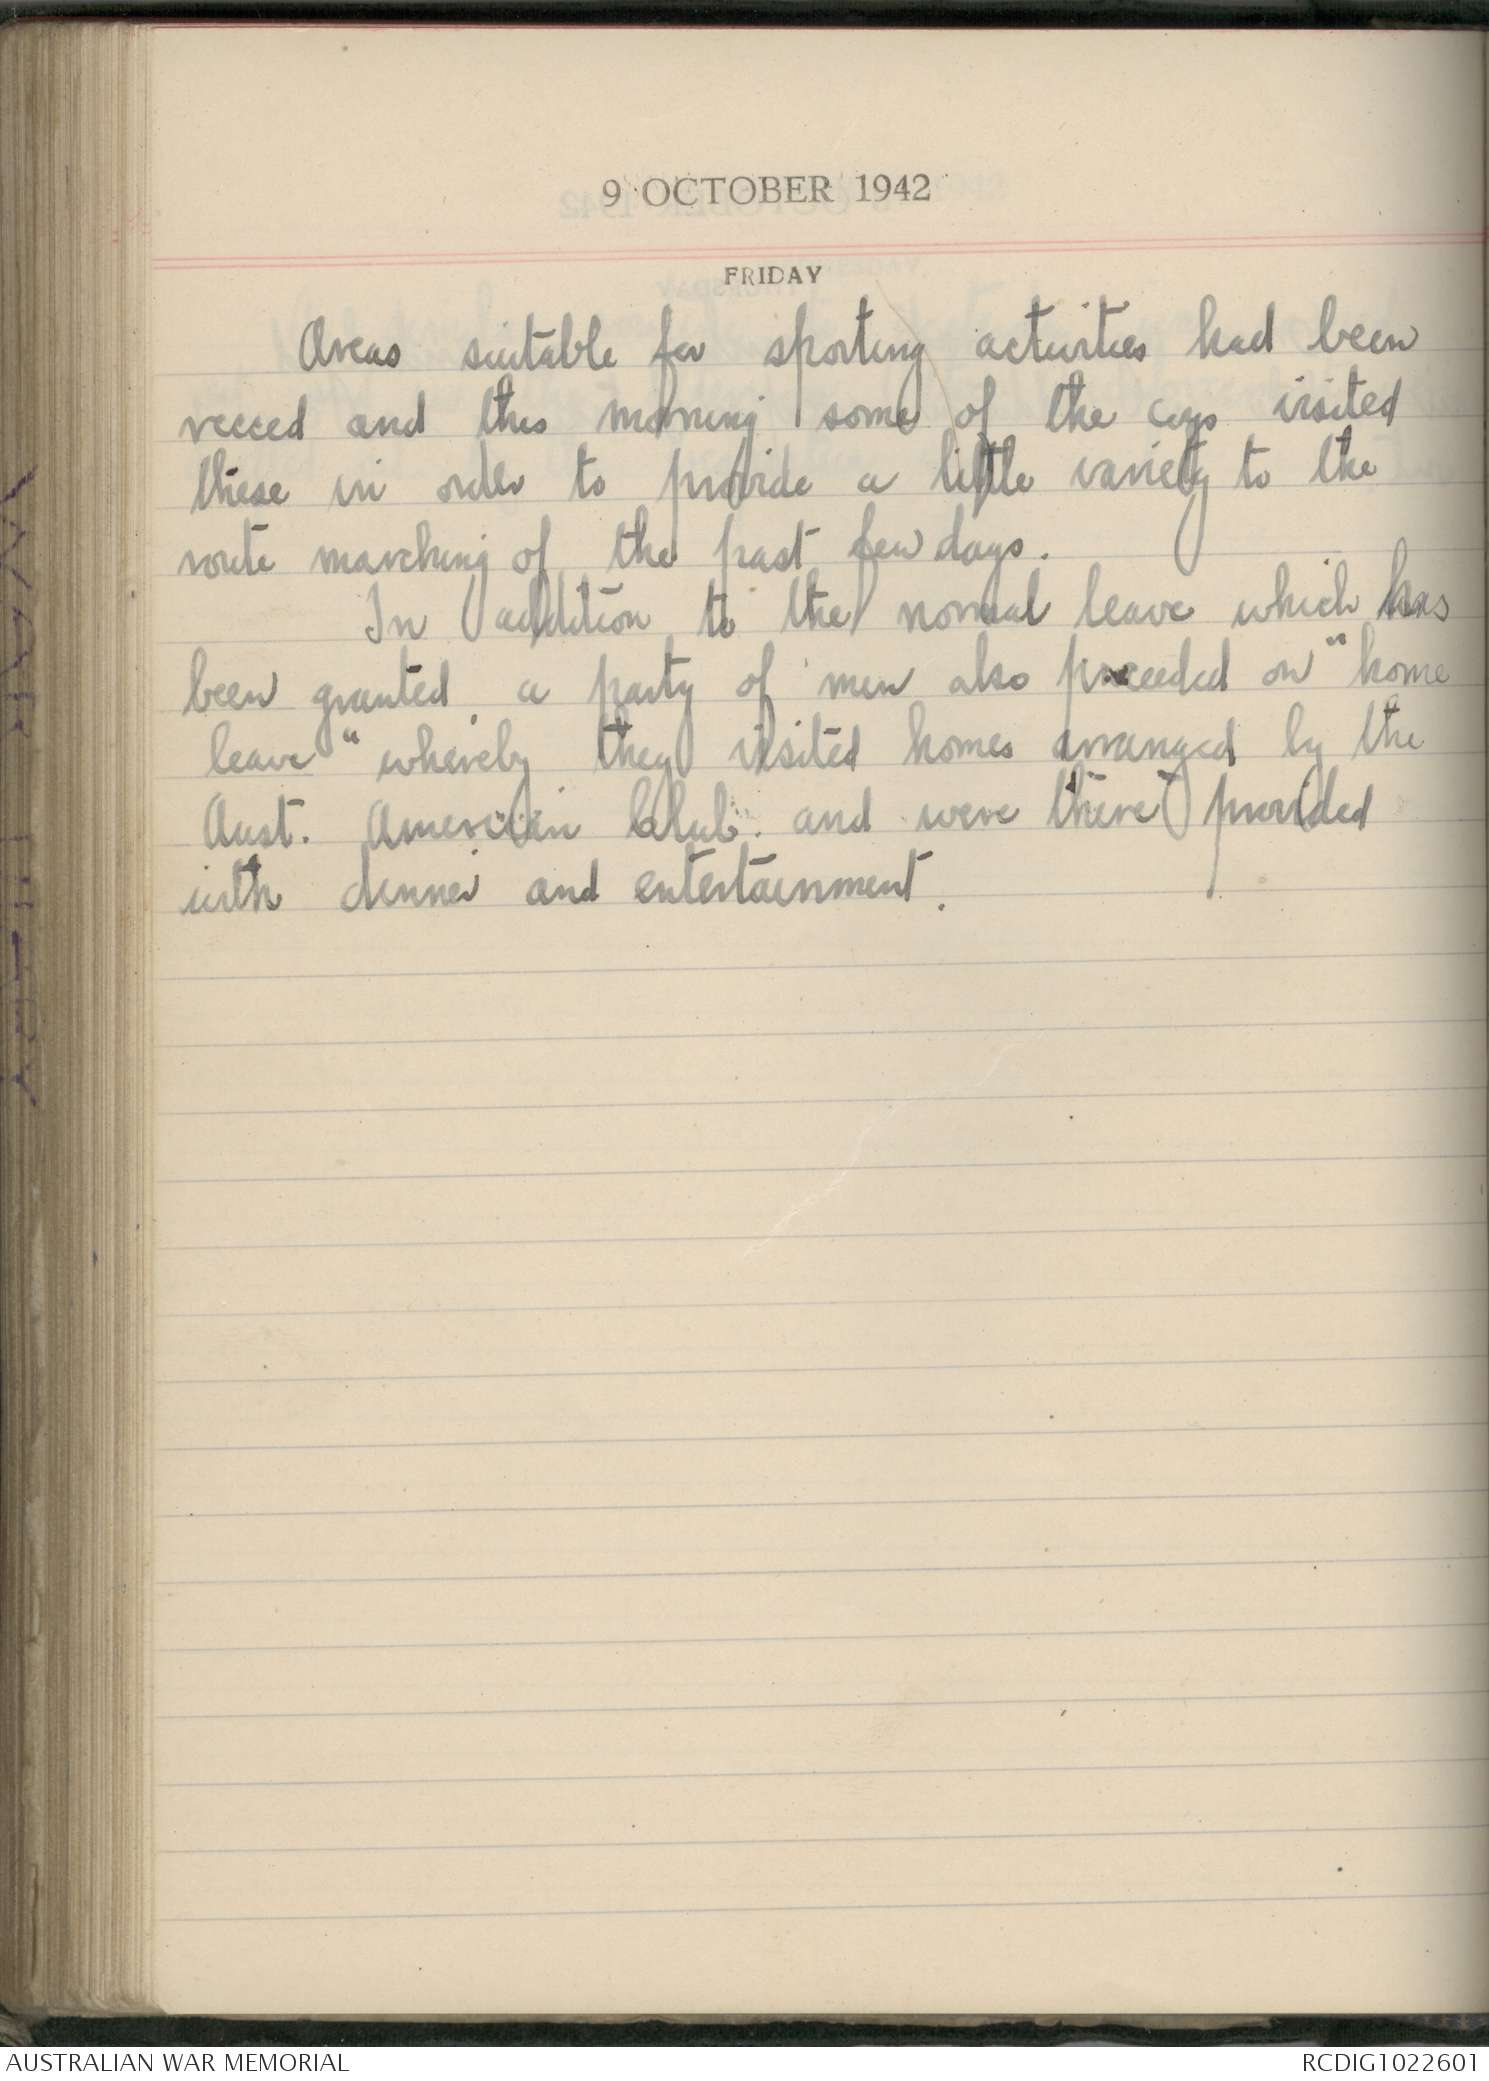 9 OCTOBER 1942
FRIDAY
Areas suitable for sporting activities had been
recced and this morning some of the coys visited
these in order to provide a little variety to the
route marching of the past few days.
In addition to the normal leave which has
been granted, a party of men also proceeded on "home
leave" whereby they visited homes arranged by the
Aust. American Club. and were there provided
with dinner and entertainment.
AUSTRALIAN WAR MEMORIAL
RCDIG1022601